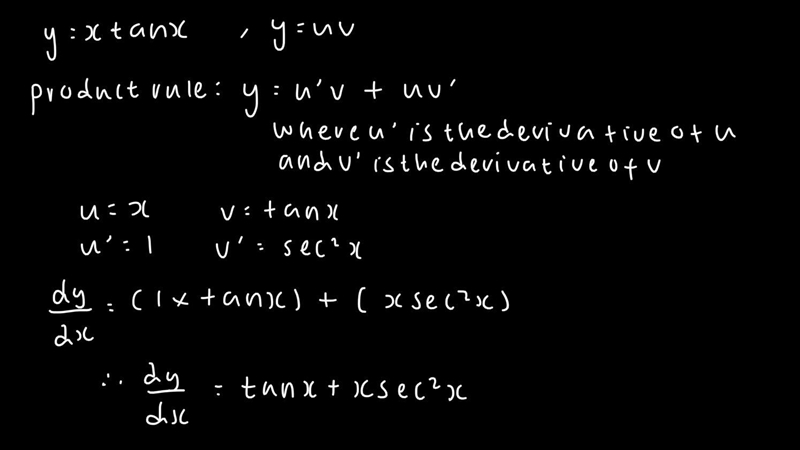 y = x tanx , y = uv
product rule: y = u'v + uv'
where u' is the derivative of u
and v' is the derivative of v
u = x v = tanx
u' = 1 v' = sec²x
dy/dx = (1 × tanx) + (x sec²x)
∴ dy/dx = tanx + x sec²x